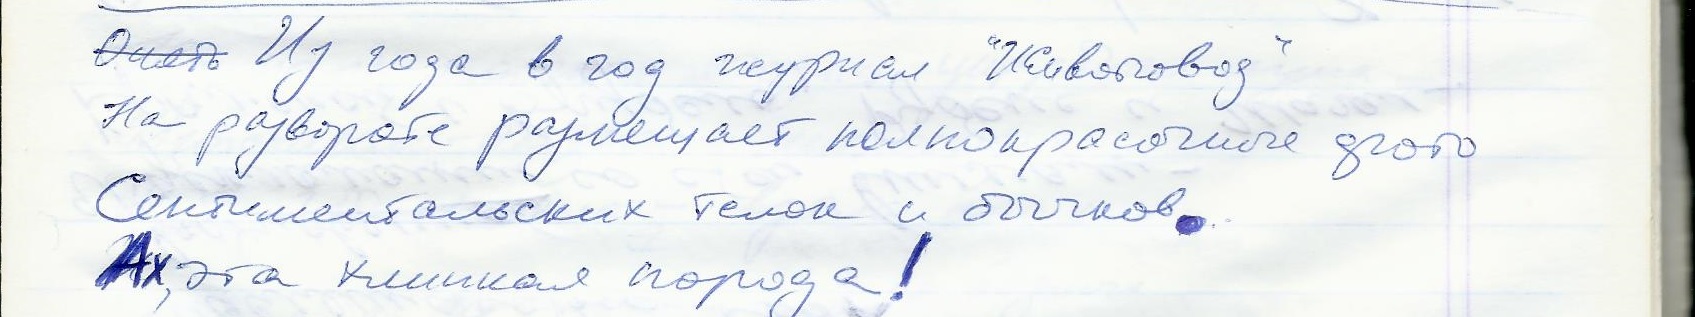 Опять Из года в год журнал "Животновод"
На развороте размещает полнокрасочные фото
Сентиментальских телок и бычков.
Ах, эта хлипкая порода!